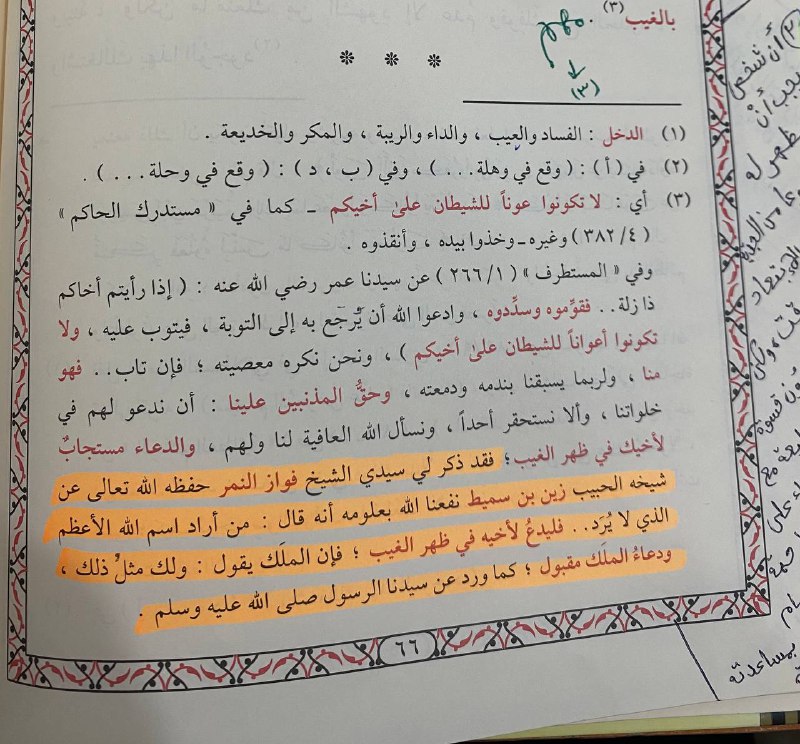 بالغيب (٣) .
مهم
(٣)
* * *
(١) الدخل : الفساد والعيب ، والداء والريبة ، والمكر والخديعة .
(٢) في ( أ ) : ( وقع في وهلة . . . ) ، وفي ( ب ، د ) : ( وقع في وحلة . . . ) .
(٣) أي : لا تكونوا عوناً للشيطان علىٰ أخيكم ـ كما في « مستدرك الحاكم »
( ٤/ ٣٨٢ ) وغيره ـ وخذوا بيده ، وأنقذوه .
وفي « المستطرف » ( ١/ ٢٦٦ ) عن سيدنا عمر رضي الله عنه : ( إذا رأيتم أخاكم
ذا زلة . . فقوِّموه وسدِّدوه ، وادعوا الله أن يُرَجِّع به إلى التوبة ، فيتوب عليه ، ولا
تكونوا أعواناً للشيطان علىٰ أخيكم ) ، ونحن نكره معصيته ؛ فإن تاب . . فهو
منا ، ولربما يسبقنا بندمه ودمعته ، وحقُّ المذنبين علينا : أن ندعو لهم في
خلواتنا ، وألا نستحقر أحداً ، ونسأل الله العافية لنا ولهم ، والدعاء مستجابٌ
لأخيك في ظهر الغيب ؛ فقد ذكر لي سيدي الشيخ فواز النمر حفظه الله تعالى عن
شيخه الحبيب زين بن سميط نفعنا الله بعلومه أنه قال : من أراد اسم الله الأعظم
الذي لا يُرَد . . فليدعُ لأخيه في ظهر الغيب ؛ فإن الملَك يقول : ولك مثلُ ذلك ،
ودعاءُ الملَك مقبول ؛ كما ورد عن سيدنا الرسول صلى الله عليه وسلم .
٦٦
(٢) أن شخص
يجب أنْ
يظهر له
بمساعدته